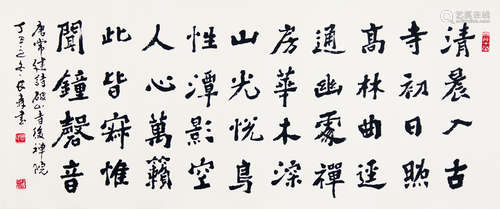 清晨入古
寺初日照
高林曲逕
通幽處禪
房華木深
山光悅鳥
性潭影空
人心萬籟
此皆寂惟
聞鐘磬音
唐常建詩破山寺後禪院
丁亥之冬書